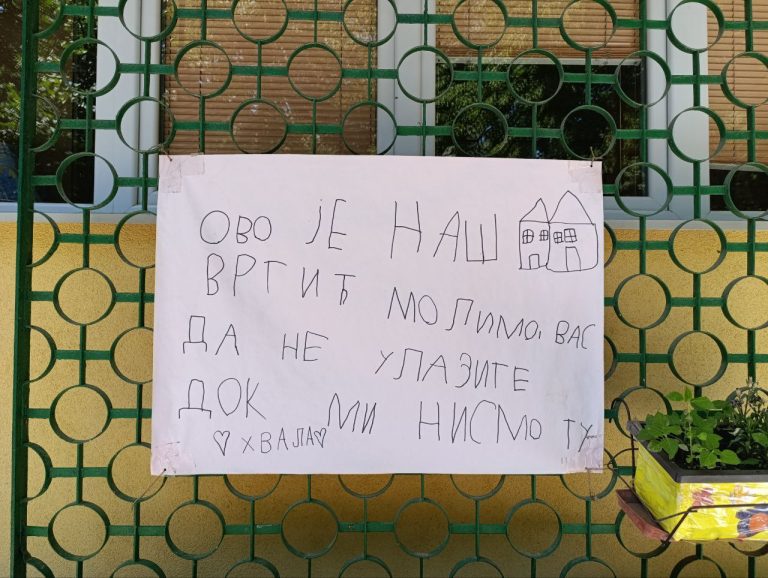 ОВО ЈЕ НАШ
ВРТИЋ МОЛИМО, ВАС
ДА НЕ УЛАЗИТЕ
ДОК МИ НИСМО ТУ
♡ ХВАЛА ♡